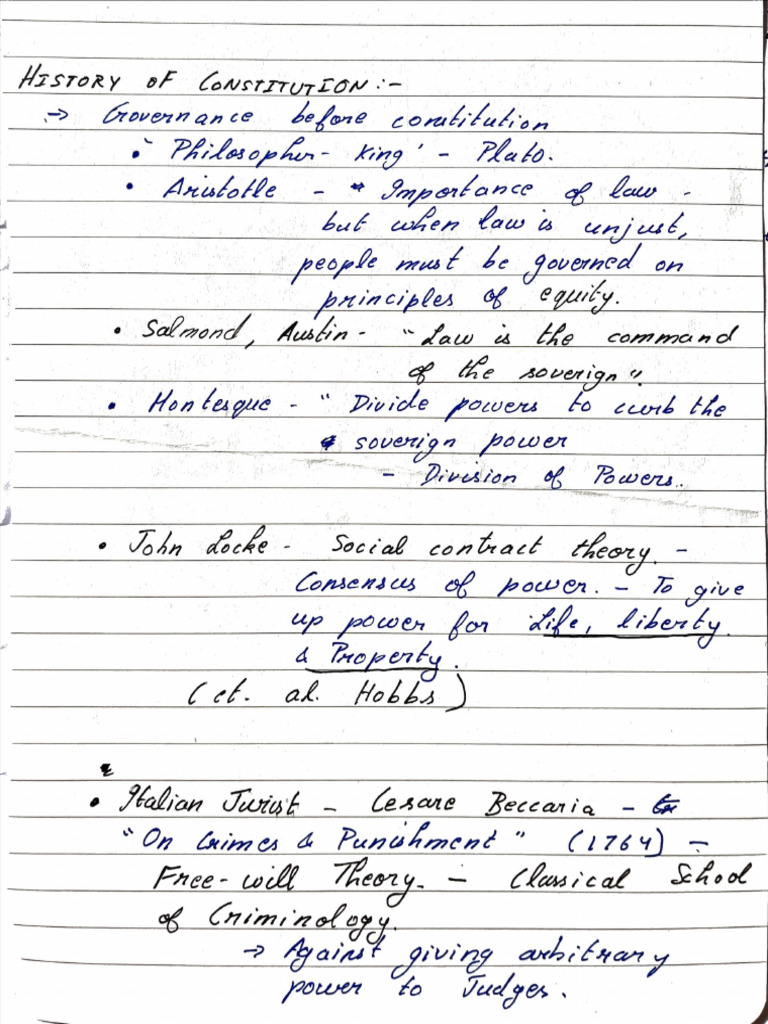 HISTORY OF CONSTITUTION :-
→ Governance before constitution
• 'Philosopher- King' - Plato.
• Aristotle - Importance of law -
but when law is unjust,
people must be governed on
principles of equity.
• Salmond, Austin - "Law is the command
of the soverign".
• Montesque - "Divide powers to curb the
soverign power
- Division of Powers.
• John Locke - Social contract theory. -
Consensus of power. - To give
up power for Life, liberty
& Property.
(et. al. Hobbs)
• Italian Jurist - Cesare Beccaria -
"On Crimes & Punishment" (1764) -
Free-will Theory. - Classical School
of Criminology.
→ Against giving arbitrary
power to Judges.